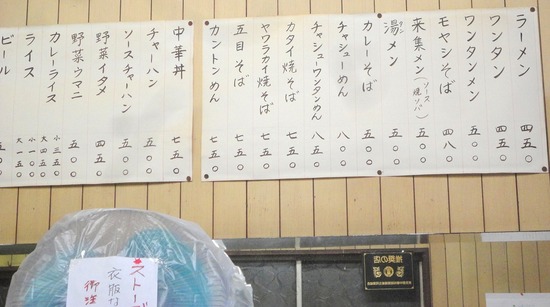 ラーメン 四五〇
ワンタン 四五〇
ワンタンメン 五〇〇
モヤシそば 四八〇
来集メン(ソース焼ソバ) 五〇〇
湯メン タン 五〇〇
カレーそば 五〇〇
チャシューめん 八〇〇
チャシューワンタンめん 八五〇
カタイ焼そば 七五〇
ヤワラカイ焼そば 七五〇
五目そば 七五〇
カントンめん 七五〇
中華丼 七五〇
チャーハン 五〇〇
ソースチャーハン 五〇〇
野菜イタメ 四五〇
野菜ウマニ 五〇〇
カレーライス 小三五〇 大四五〇
ライス 小一〇〇 大一五〇
ビール 五〇〇
ストー
衣服が
御注